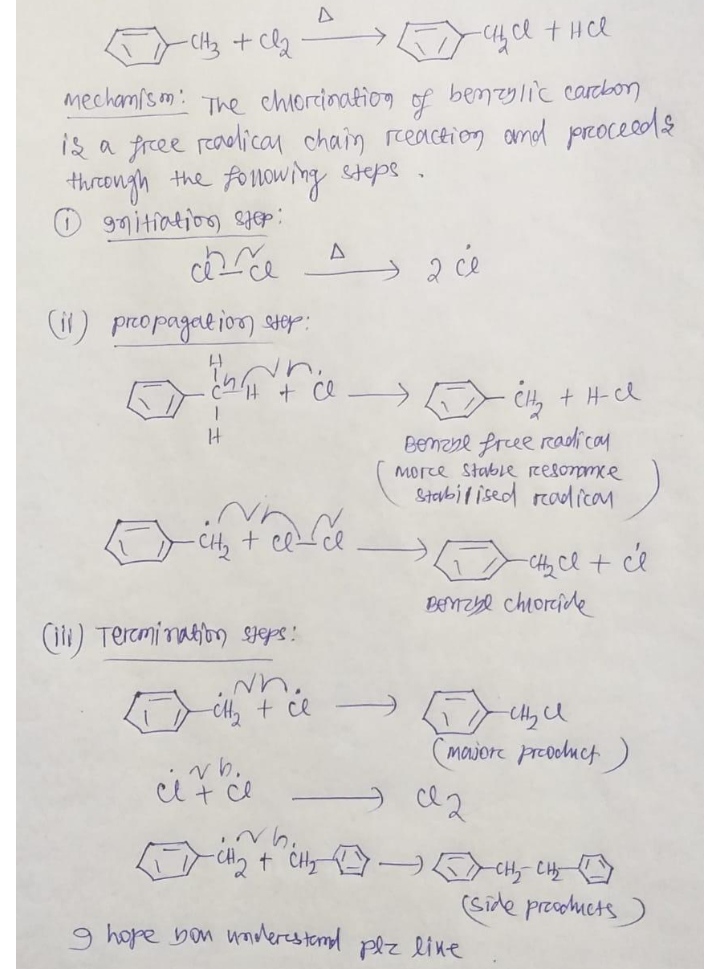 CH3 + Cl2 Δ → CH2Cl + HCl
Mechanism: The chlorcination of benzylic carcbon
is a free rcadical chain rceaction and prcoceeds
thrcough the following steps.
(i) Initiation step:
Cl-Cl Δ → 2 Cl•
(ii) prcopagation step:
H
C-H + Cl• → •CH2 + H-Cl
H
Benzyl free rcadical
(morce stable rcesonance
stabilised rcadical)
•CH2 + Cl-Cl → CH2Cl + Cl•
Benzyl chlorcide
(iii) Tercmination steps:
•CH2 + Cl• → CH2Cl
(majorc prcoduct)
Cl• + Cl• → Cl2
•CH2 + •CH2 → CH2-CH2
(side prcoducts)
I hope you undercstand plz like